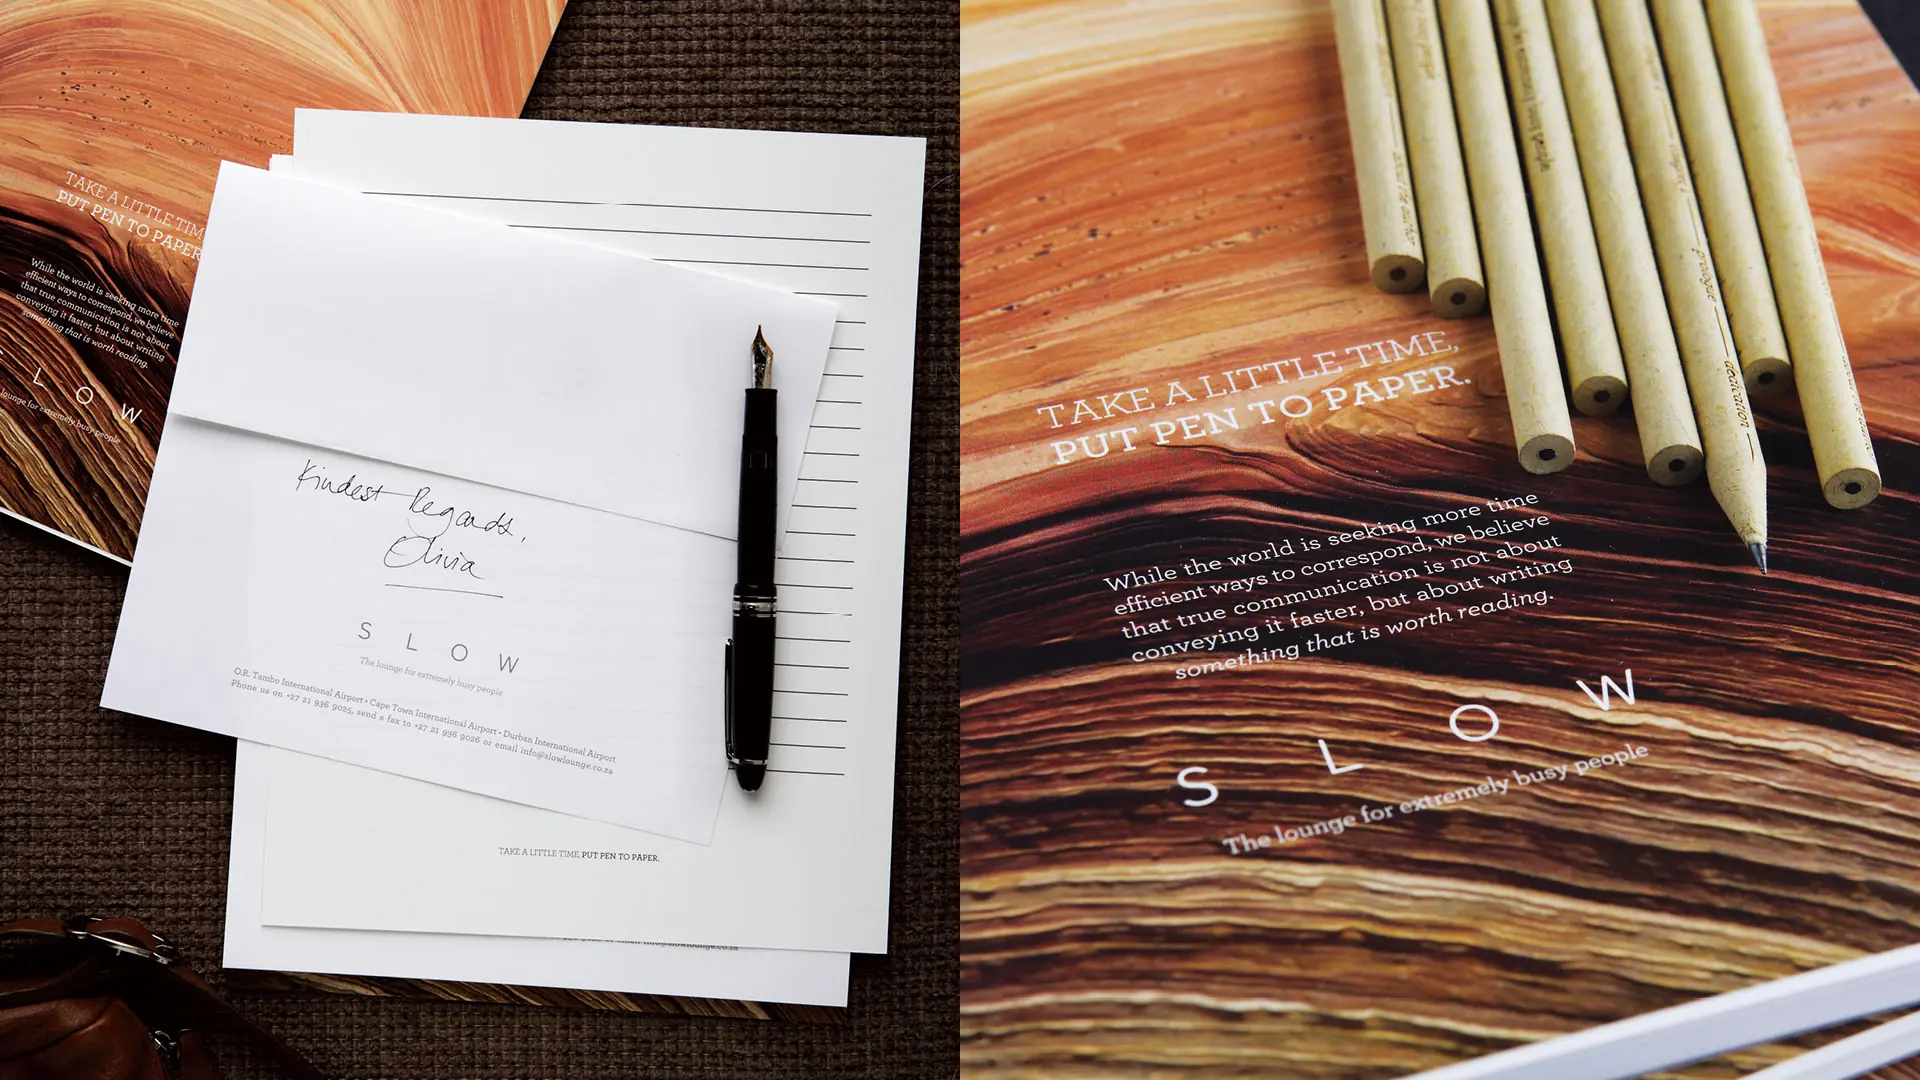 TAKE A LITTLE TIM
PUT PEN TO PAPER
While the world is seeking more time
efficient ways to correspond, we believe
that true communication is not about
conveying it faster, but about writing
something that is worth reading.
L O W
lounge for extremely busy people
Kindest Regards,
Olivia
S L O W
The lounge for extremely busy people
O.R. Tambo International Airport • Cape Town International Airport • Durban International Airport
Phone us on +27 21 936 9025, send a fax to +27 21 936 9026 or email info@slowlounge.co.za
TAKE A LITTLE TIME, PUT PEN TO PAPER.
info@slowlounge.co.za
TAKE A LITTLE TIME,
PUT PEN TO PAPER.
While the world is seeking more time
efficient ways to correspond, we believe
that true communication is not about
conveying it faster, but about writing
something that is worth reading.
S L O W
The lounge for extremely busy people
busy people
prologue — dedication —